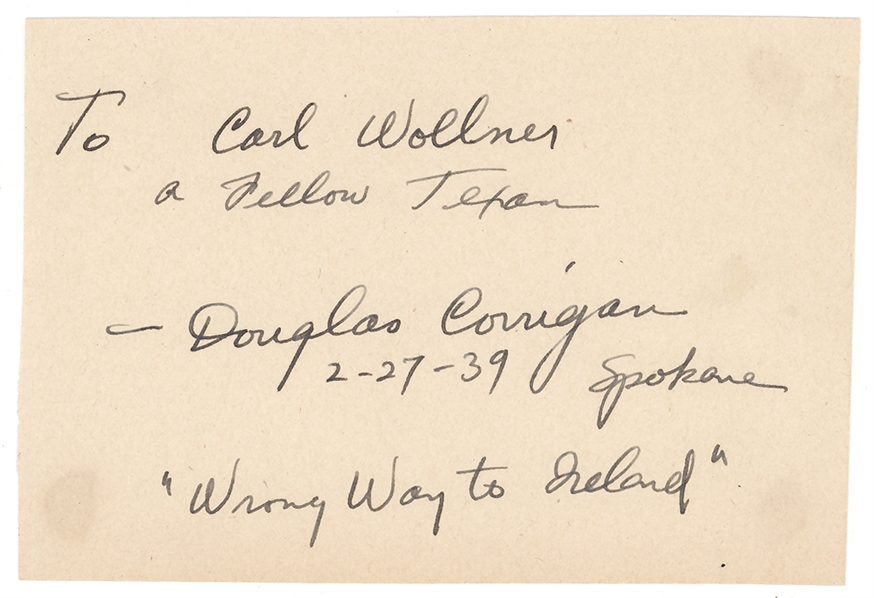 To Carl Wollner
a Fellow Texan
— Douglas Corrigan
2-27-39 Spokane
"Wrong Way to Ireland"